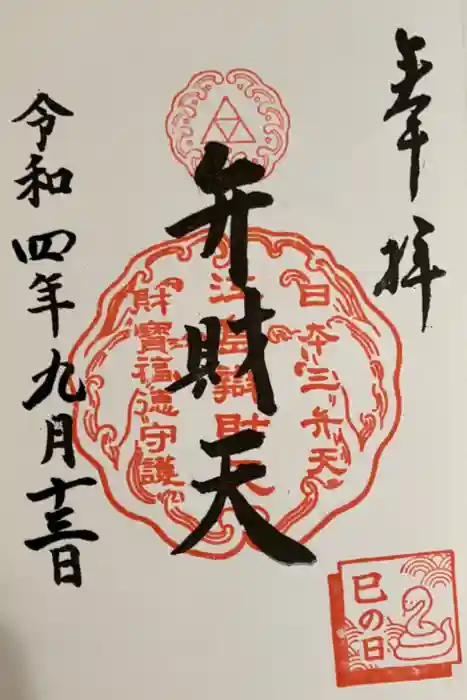 奉拝
日本三弁天
江島辯財天
財寶福徳守護
弁財天
令和四年九月十三日
巳の日